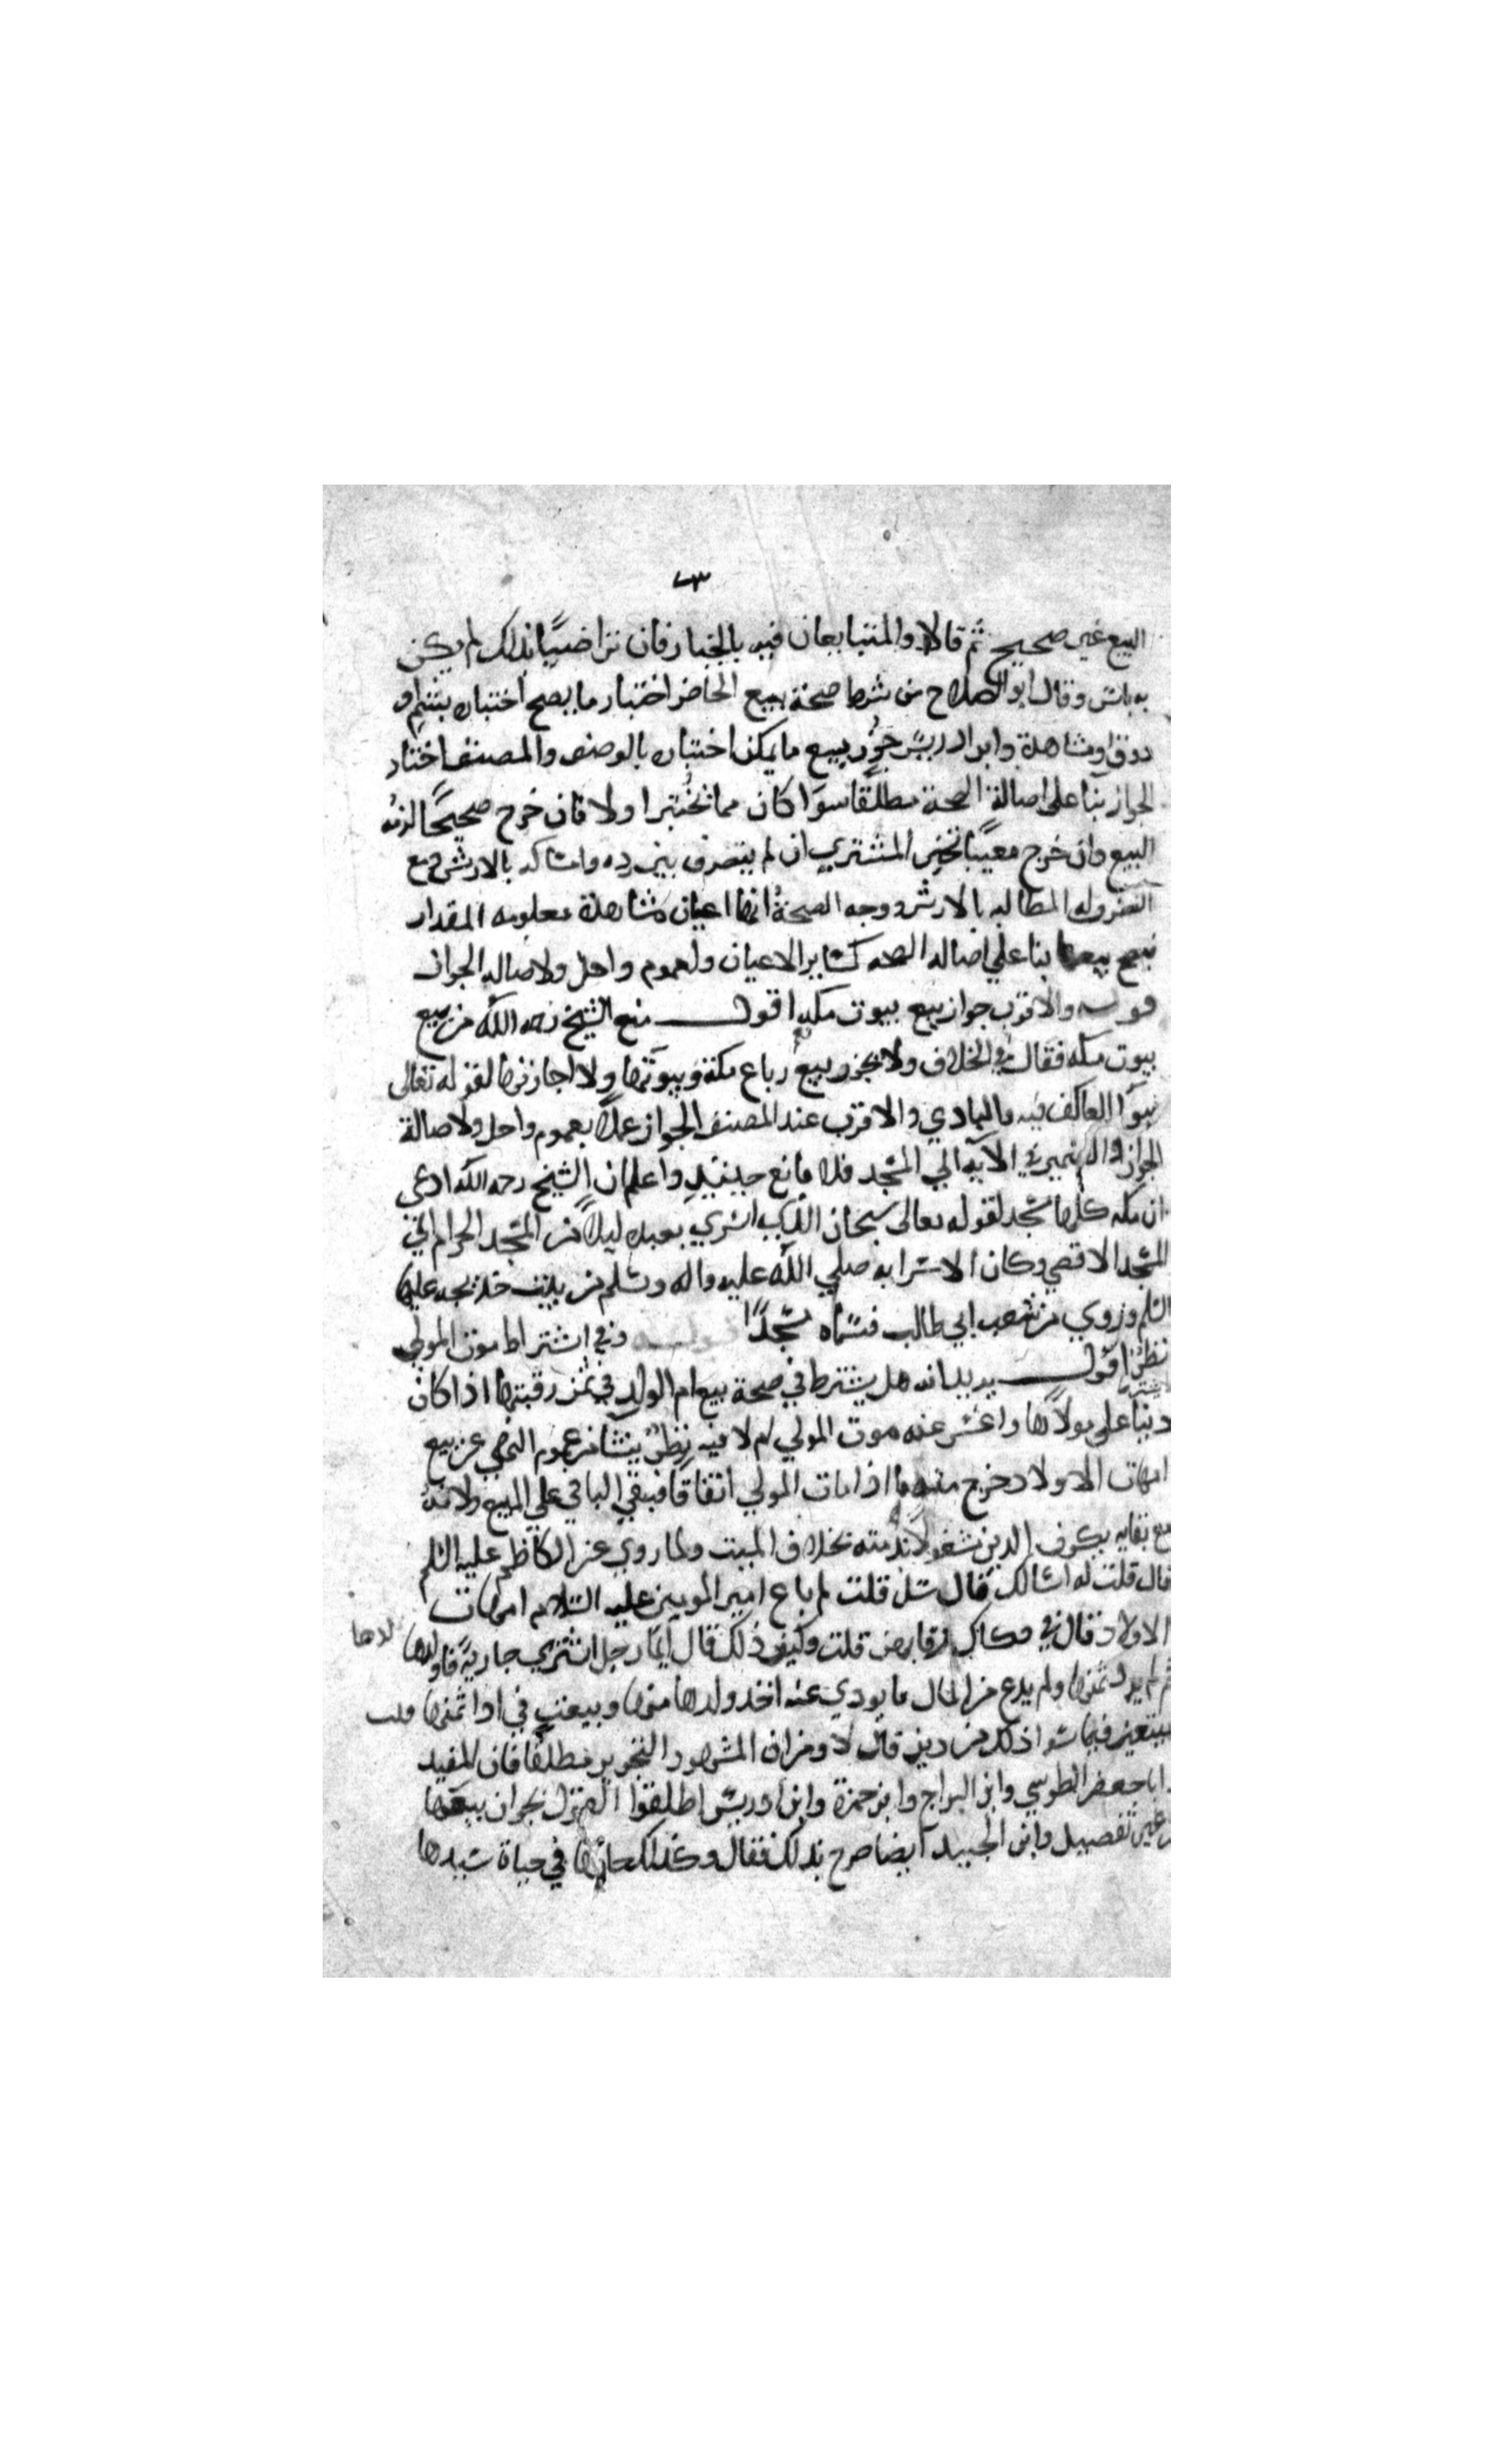 ٣
البيع غير صحيح ثم قالا والمتبايعان فيه بالخيار فان تراضيا بذلك لم يكن
به باس وقال ابو الصلاح من شرط صحة بيع الحاضر اختبار ما يصح اختباره بشم او
ذوق او مشاهدة وابن ادريس جوز بيع ما يمكن اختباره بالوصف والمصنف اختار
الجواز بنا على اصالة الصحة مطلقا سوا كان مما يختبر اولا فان خرج صحيحا لزمه
البيع وان خرج معيبا تخير المشتري ان لم يتصرف بين رده وامساكه بالارش ومع
التصرف له المطالبه بالارش ووجه الصحة انها اعيان مشاهدة معلومه المقدار
فيصح بيعها بنا علي اصاله الصحه كساير الاعيان ولعموم واحل ولاصاله الجواز
قوله والاقرب جواز بيع بيوت مكه اقول منع الشيخ رحمه الله من بيع
بيوت مكه فقال في الخلاف ولا يجوز بيع رباع مكة وبيوتها ولا اجازتها لقوله تعالى
سوآ العاكف فيه والبادي والاقرب عند المصنف الجواز عملا بعموم واحل ولاصالة
الجواز والضمير في الآيه الي المسجد فلا مانع حينئذ واعلم ان الشيخ رحمه الله ادعى
ان مكه كلها مسجد لقوله تعالى سبحان الذي اسري بعبده ليلا من المسجد الحرام الي
المسجد الاقصي وكان الاسرا به صلي الله عليه واله وسلم من بيت خديجه عليها
السلم وروي من شعب ابي طالب فسماه مسجدا قوله وفي اشتراط موت المولي
نظر اقول يريد انه هل يشترط في صحة بيع ام الولد في ثمن رقبتها اذا كان
دينا على مولاها واعسر عنه موت المولي ام لا فيه نظر ينشا من عموم النهي عن بيع
امهات الاولاد خرج منه ما اذا مات المولي اتفاقا فيبقي الباقي علي المنع ولانه
مع بقايه يكون الدين مشغولا بذمته بخلاف الميت ولما روي عن الكاظم عليه السلم
قال قلت له اسالك قال سل قلت لم باع امير المومنين عليه السلام امهات
الاولاد قال في فكاك رقابهن قلت وكيف ذلك قال ايما رجل اشتري جارية فاولدها
لدها
ثم لم يود ثمنها ولم يدع من المال ما يودي عنه اخذ ولدها منها وبيعت في ادا ثمنها قلت
فيبعن فيما سوا ذلك من دين قال لا ومن ان المشهور التجويز مطلقا فان المفيد
وابا جعفر الطوسي وابن البراج وابن حمزة وابن ادريس اطلقوا القول بجواز بيعها
من غير تفصيل وابن الجنيد ايضا صرح بذلك فقال وكذلك حالها في حياة سيدها